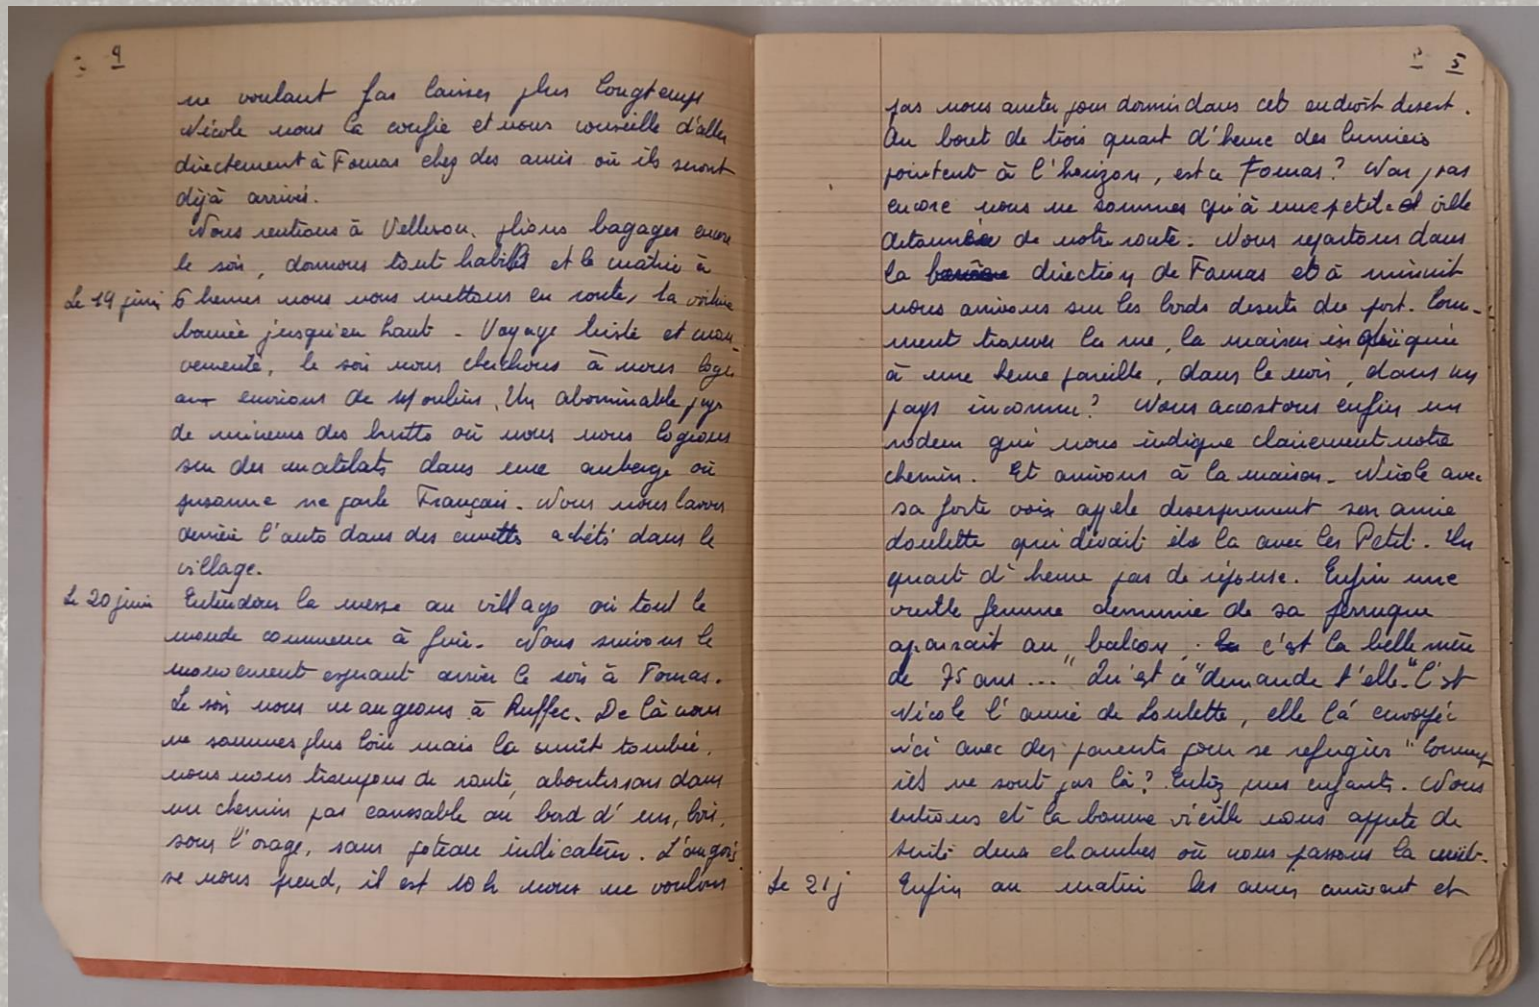 4
ne voulant pas laisser plus longtemps
Nicole nous la confie et nous conseille d'aller
directement à Fouras chez des amis où ils seront
déjà arrivés.
Nous rentrons à Velleron. plions bagages encore
le soir, dormons tout habillés et le matin à
Le 19 juin 6 heures nous nous mettons en route, la voiture
bourrée jusqu'en haut - Voyage triste et mou-
vementé, le soir nous cherchons à nous loger
aux environs de Moulins. Un abominable pays
de mineurs des huttes où nous nous logeons
sur des matelats dans une auberge où
personne ne parle Français. Nous nous lavons
derrière l'auto dans des cuvettes achetés dans le
village.
Le 20 juin Entendons la messe au village où tout le
monde commence à fuir. Nous suivons le
mouvement espérant arriver le soir à Fouras.
Le soir nous mangeons à Ruffec. De là nous
ne sommes plus loin mais la nuit tombée,
nous nous trompons de route, aboutissons dans
un chemin pas carrossable au bord d'un, bois,
sous l'orage, sans poteau indicateur. L'angois
se nous prend, il est 10 h nous ne voulons
5
pas nous arreter pour dormir dans cet endroit desert.
Au bout de trois quart d'heure des lumieres
pointent à l'horizon, est ce Fouras? Non pas
encore nous ne sommes qu'à une petite ville
de notre route. Nous repartons dans
la direction de Fouras et à minuit
nous arrivons sur les bords deserts du port. Com-
ment trouver la rue, la maison
à une heure pareille, dans le noir, dans un
pays inconnu? Nous accostons enfin un
rodeur qui nous indique clairement notre
chemin. Et arrivons à la maison. Nicole avec
sa forte voix appele desesperement son amie
Loulette qui devait être la avec les Petit. Un
quart d'heure pas de réponse. Enfin une
vieille femme demunie de sa perruque
aparait au balcon, c'est la belle mère
de 75 ans... "Qu'est ce" demande t'elle. "C'est
Nicole l'amie de Loulette, elle l'a envoyée
ici avec des parents pour se refugier" Comment
ils ne sont pas là? Entrez mes enfants. Nous
entrons et la bonne vieille nous apprete de
suite deux chambres où nous passons la nuit.
Le 21 j Enfin au matin les amis arrivent et